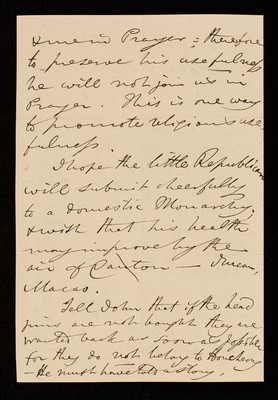 & men's Prayer - therefore
to preserve his usefulness
he will not join us in
Prayer. This is one way
to promote religious use
fulness.
I hope the little Republican
will submit cheerfully
to a domestic Monarchy,
& wish that his health
may improve by the
air of Canton — I mean,
Macao.
Tell John that if the head
pins are not bought they are
wanted back as soon as possible
for they do not belong to
- He must have told a story.